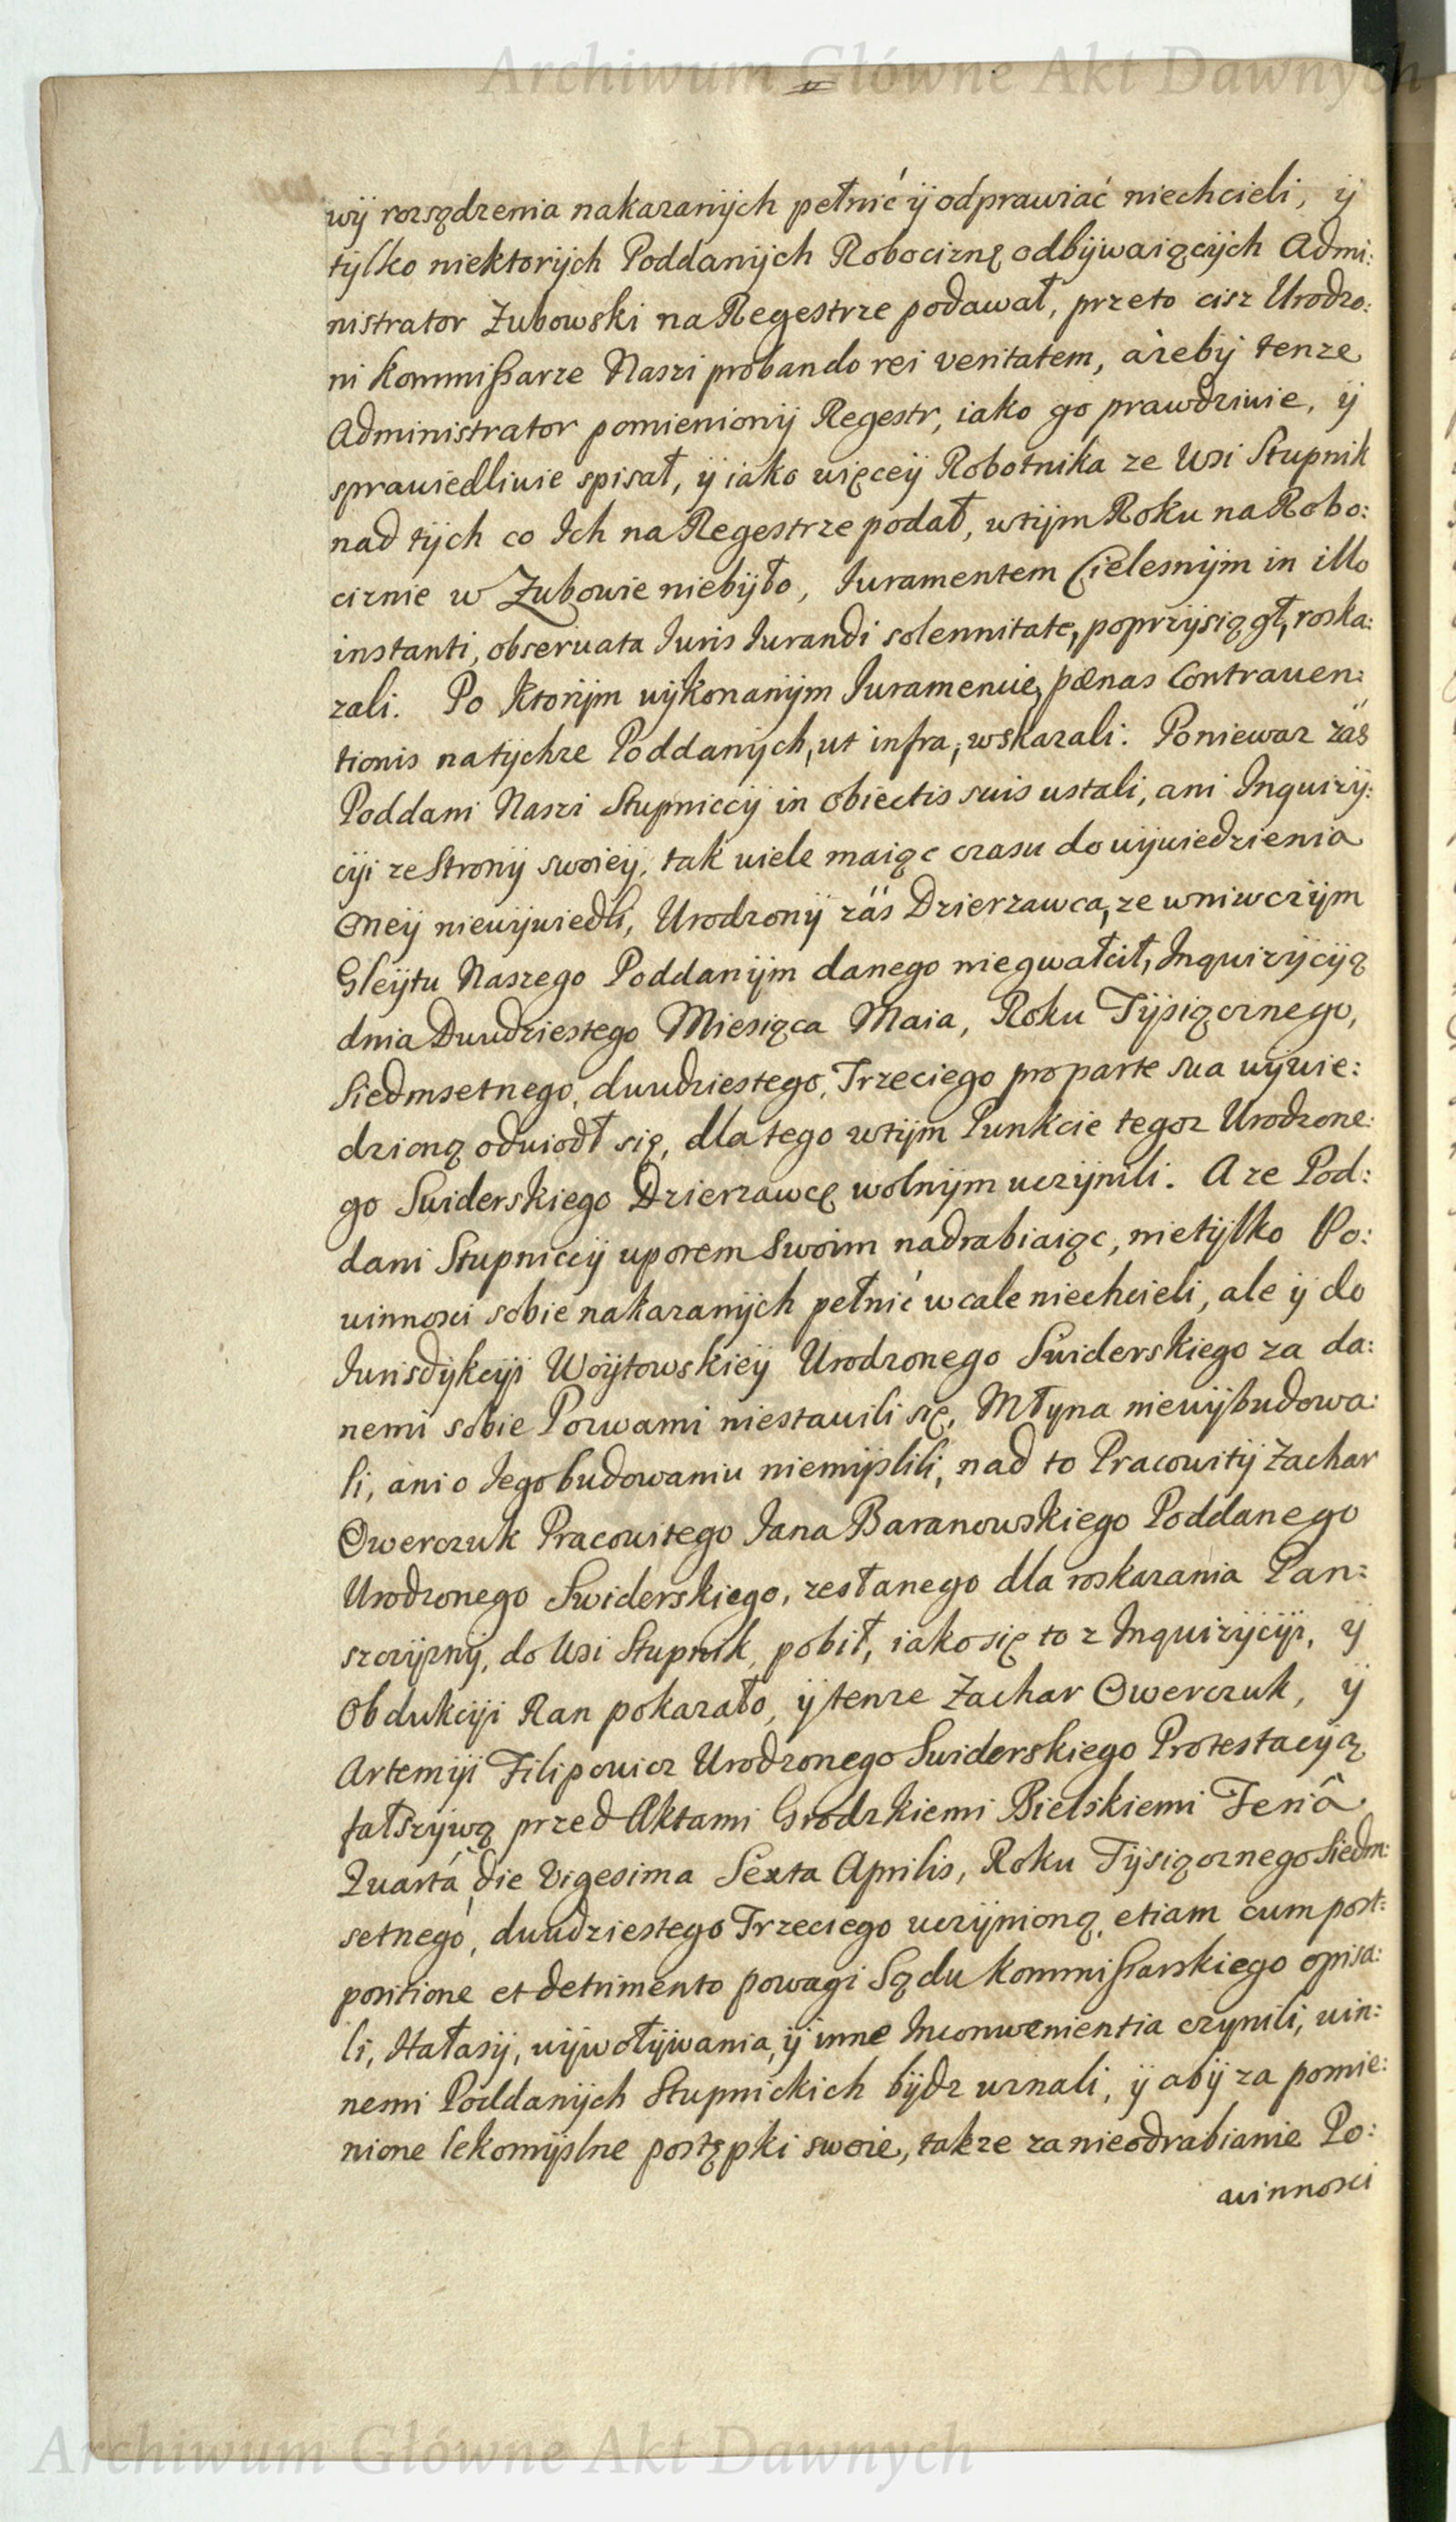 Archiwum Główne Akt Dawnych
wÿ rozsądzenia nakazanÿch pełnić ÿ odprawiać niechcieli, ÿ
tÿlko niektorÿch Poddanÿch Robociznę odbÿwaiącÿch Admi:
nistrator Zubowski na Regestrze podawał, przeto cisz Urodzo:
ni Kommißarze Naszi probando rei veritatem, ażebÿ tenze
Administrator pomienionÿ Regestr, iako go prawdziwie, ÿ
sprawiedliwie spisał, ÿ iako więceÿ Robotnika ze Wsi Stupnik
nad tÿch co Ich na Regestrze podał, wtÿm Roku na Robo:
ciznie w Zubowie niebÿło, Iuramentem Cielesnÿm in illo
instanti, observata Iuris Iurandi solennitate, poprzÿsiągł, roska:
zali. Po Ktorÿm wÿkonanÿm Iuramencie, pænas Contraven:
tionis natÿchze Poddanÿch, ut infra, wskazali. Poniewaz záś
Poddani Naszi Stupniccÿ in obiectis suis ustali, ani Inquizÿ:
cÿi ze Stronÿ swoieÿ, tak wiele maiąc czasu do wÿwiedzienia
Oneÿ niewÿwiedli, Urodzonÿ záś Dzierzawca, ze wniwczÿm
Gleÿtu Naszego Poddanÿm danego niegwałcił, Inquizÿcÿą
dnia Dwudziestego Miesiąca Maia, Roku Tÿsiącznego,
Siedmsetnego, dwudziestego, Trzeciego pro parte sua wÿwie:
dzioną odwiodł się, dla tego wtÿm Punkcie tegoz Urodzone:
go Swiderskiego Dzierzawcę wolnÿm uczÿnili. A ze Pod:
dani Stupniccÿ uporem Swoim nadrabiaiąc, nietÿlko Po:
winnosci sobie nakazanÿch pełnić wcale niechcieli, ale ÿ do
Iurisdÿkcÿi Woÿtowskieÿ Urodzonego Swiderskiego za da:
nemi sobie Pozwami niestawili się, Młyna niewÿbudowa:
li, ani o Iego budowaniu niemÿslili, nad to Pracowitÿ Zachar
Owerczuk Pracowitego Iana Baranowskiego Poddanego
Urodzonego Swiderskiego, zesłanego dla roskazania Pan:
szczÿznÿ, do Wsi Stupnik, pobił, iako się to z Inquizÿcÿi, ÿ
Obdukcÿi Ran pokazało, ÿ tenze Zachar Owerczuk, ÿ
Artemÿi Filipowicz Urodzonego Swiderskiego Protestacÿą
fałszÿwą przed Aktami Grodzkiemi Bielskiemi Feriâ
Quartá die Vigesima Sexta Aprilis, Roku Tÿsiącznego Siedm:
setnego, dwudziestego Trzeciego uczÿnioną, etiam cum post:
positione et detrimento powagi Sądu Kommißarskiego opisa:
li, Hałasÿ, wÿwołÿwania, ÿ inne Inconwenientia czynili, win:
nemi Poddanÿch Stupnickich bÿdz uznali, ÿ abÿ za pomie:
nione lekomÿslne postępki swoie, takze za nieodrabianie Po:
winnosci
Archiwum Główne Akt Dawnych